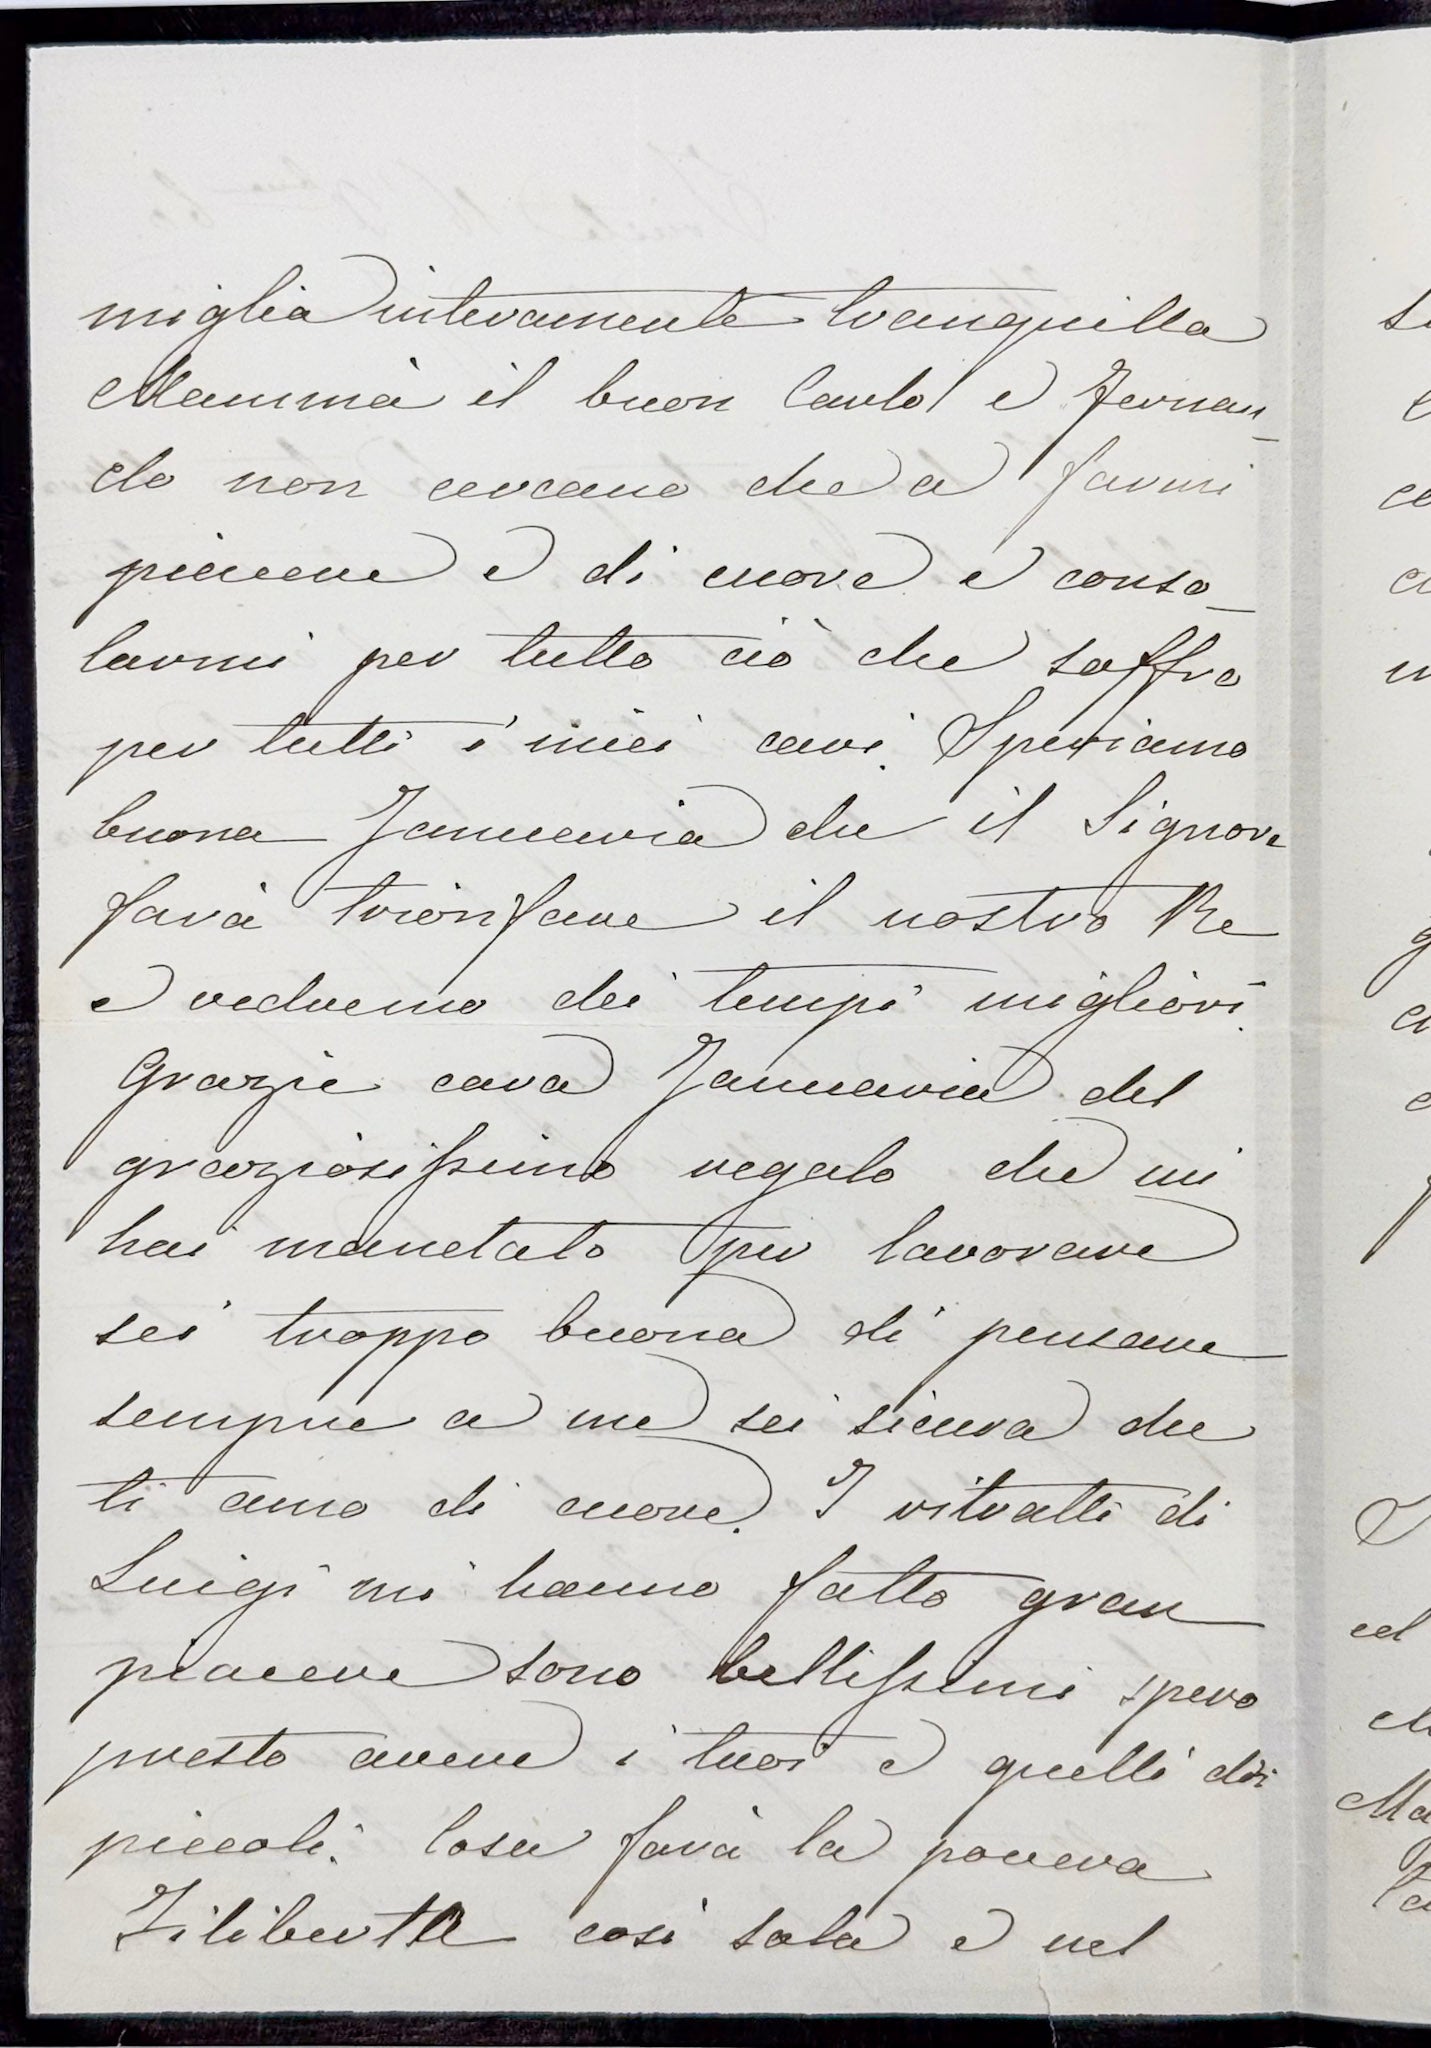 miglia interamente tranquilla
Mammà il buon Carlo e Fernan_
do non cercano che a farmi
piacere e di cuore e conso_
larmi per tutto ciò che soffro
per tutti i miei cari. Speriamo
buona Januaria che il Signore
farà trionfare il nostro Re
e vedremo dei tempi migliori.
Grazie cara Januaria del
graziosissimo regalo che mi
hai mandato per lavorare
sei troppo buona di pensare
sempre a me sei sicura che
ti amo di cuore. I ritratti di
Luigi mi hanno fatto gran
piacere sono bellissimi spero
presto avere i tuoi e quelli dei
piccoli. Cosa farà la povera
Filiberta così sola e nel